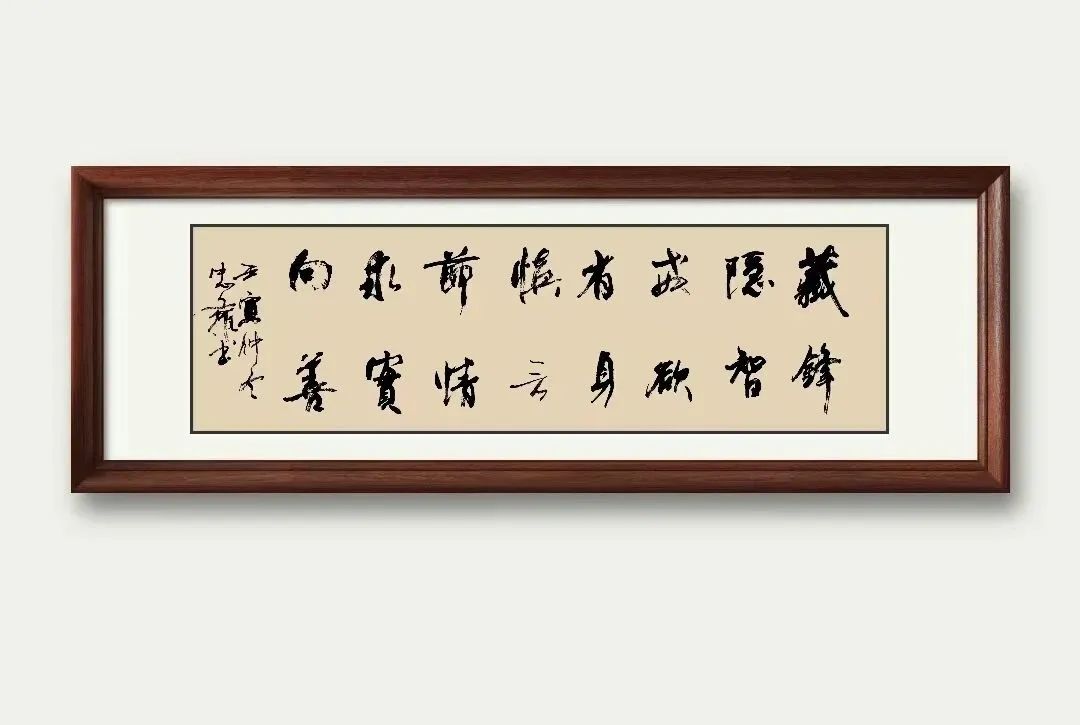 藏鋒
隱智
戒欲
省身
慎言
節情
求實
向善
壬寅仲冬
忠书